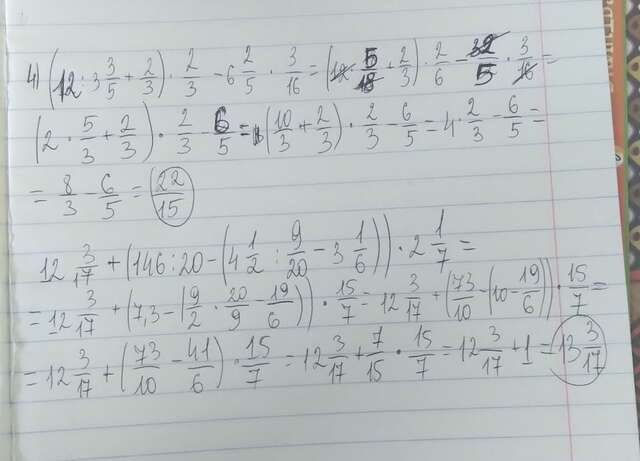 4) (12 : 3 3/5 + 2/3) · 2/3 - 6 2/5 · 3/16 = (12 · 5/18 + 2/3) · 2/6 - 32/5 · 3/16 =
(2 · 5/3 + 2/3) · 2/3 - 6/5 = (10/3 + 2/3) · 2/3 - 6/5 = 4 · 2/3 - 6/5 =
= 8/3 - 6/5 = 22/15
12 3/17 + (146 : 20 - (4 1/2 : 9/20 - 3 1/6)) · 2 1/7 =
= 12 3/17 + (7,3 - (9/2 · 20/9 - 19/6)) · 15/7 = 12 3/17 + (73/10 - (10 - 19/6)) · 15/7 =
= 12 3/17 + (73/10 - 41/6) · 15/7 = 12 3/17 + 7/15 · 15/7 = 12 3/17 + 1 = 13 3/17